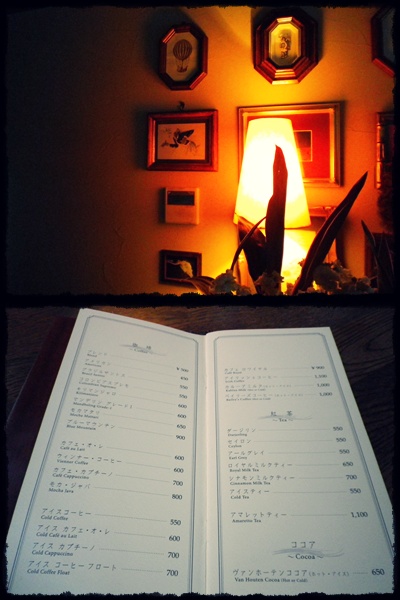 珈琲
~Coffee~
ブレンド
Blend
¥500
550
600
600
600
600
650
900
Mocha Mattari
Blue Mountain
カフェ・オ・レ
Café au Lait
600
ウィンナー・コーヒー
Viennese Coffee
600
カフェ・カプチーノ
Café Cappuccino
700
モカ・ジャバ
Mocha Java
800
アイスコーヒー
Cold Coffee
550
アイス カフェ・オ・レ
Cold Café au Lait
600
アイス カプチーノ
Cold Cappuccino
700
アイス コーヒー フロート
Cold Coffee Float
700
¥900
1,100
1,000
1,000
紅茶
~Tea~
ダージリン
Darjeeling
550
セイロン
Ceylon
550
アールグレイ
Earl Grey
550
ロイヤルミルクティー
Royal Milk Tea
650
シナモンミルクティー
Cinnamon Milk Tea
700
アイスティー
Cold Tea
550
アマレットティー
Amaretto Tea
1,100
ココア
~Cocoa~
ヴァンホーテンココア(ホット・アイス)
Van Houten Cocoa (Hot or Cold)
650